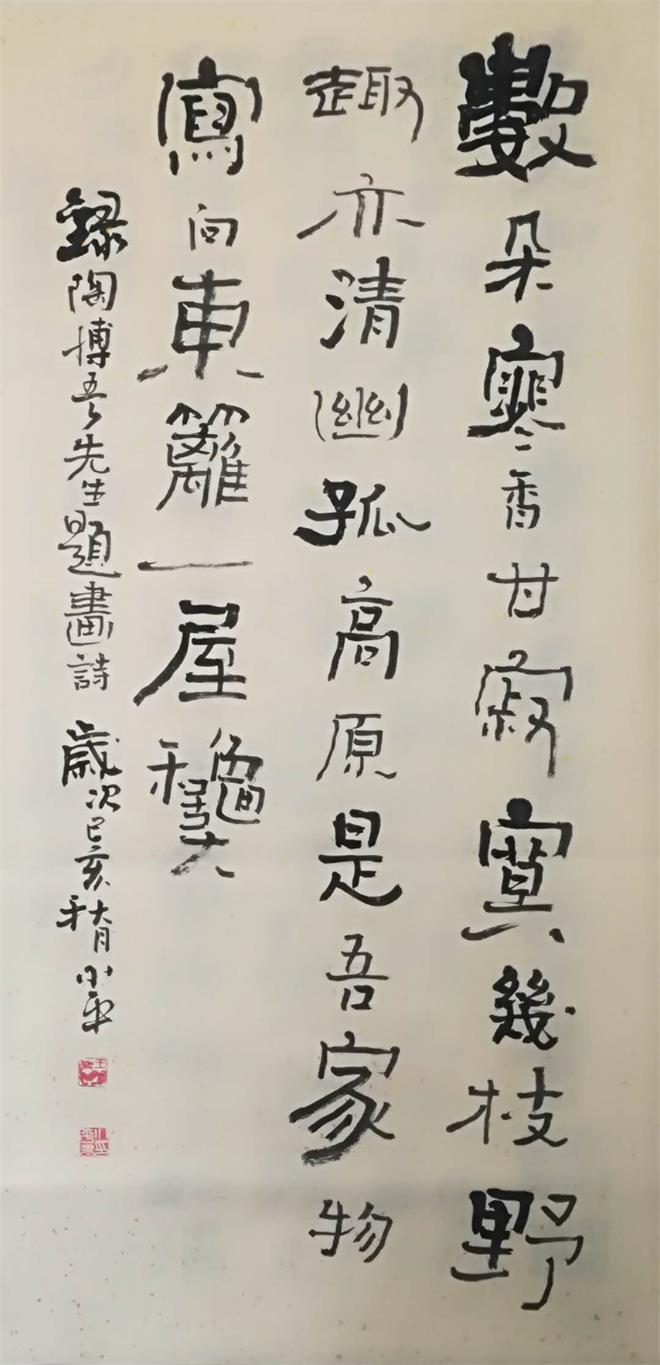 數朵寒香甘寂寞幾枝野
趣亦清幽孤高原是吾家物
寫向東籬一屋龝
錄陶博吾先生題畫詩 歲次己亥 小平